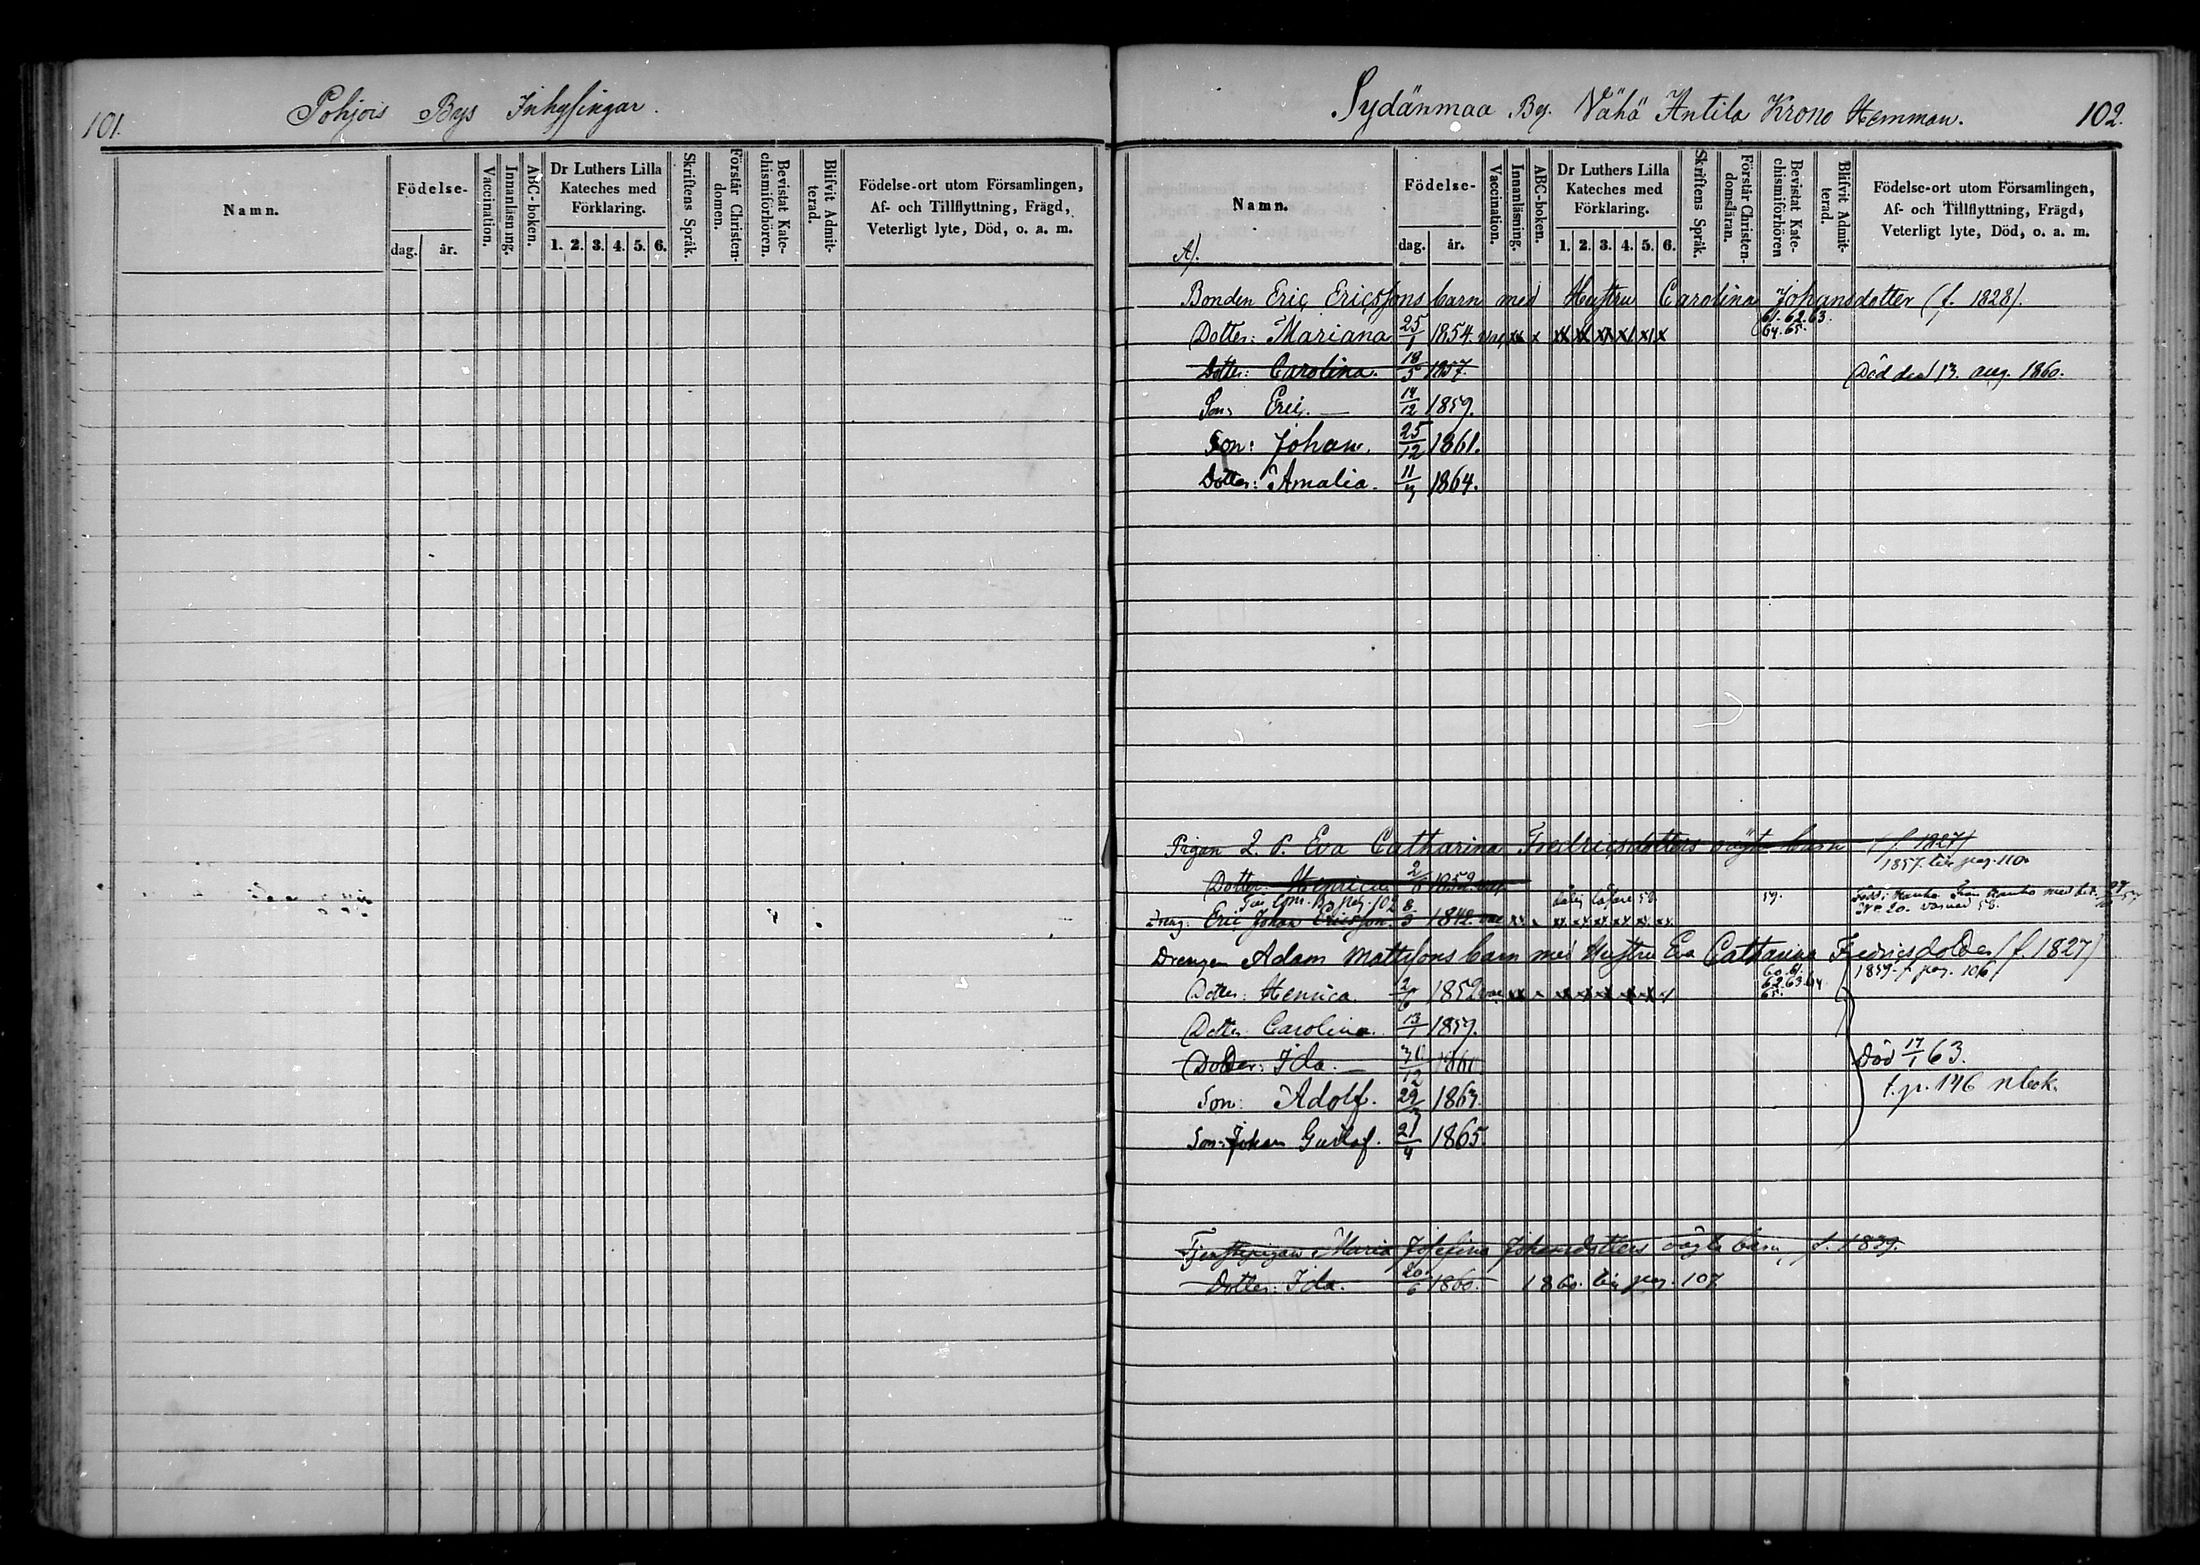 101. Pohjois Bys Inhysingar.
Namn.
Födelse-
dag. år.
Vaccination.
Innanläsning.
ABC-boken.
Dr Luthers Lilla Kateches med Förklaring.
1. 2. 3. 4. 5. 6.
Skriftens Språk.
Förstår Christendomen.
Bevistat Katechismiförhören.
Blifvit Admitterad.
Födelse-ort utom Församlingen,
Af- och Tillflyttning, Frägd,
Veterligt lyte, Död, o. a. m.
Sydänmaa By. Vähä Antila Krono Hemman. 102.
Namn.
A).
Födelse-
dag. år.
Vaccination.
Innanläsning.
ABC-boken.
Dr Luthers Lilla
Kateches med
Förklaring.
1. 2. 3. 4. 5. 6.
Skriftens Språk.
Förstår Christendomsläran.
Bevistat Katechismiförhören
Blifvit Admitterad.
Födelse-ort utom Församlingen,
Af- och Tillflyttning, Frägd,
Veterligt lyte, Död, o. a. m.
Bonden Eric Ericssons barn med Hustru Carolina Johansdotter (f. 1828).
Dotter: Mariana 25/1 1854. vac xx x xx xx xx x x x 61. 62. 63. 64. 65.
Dotter: Carolina. 18/5 1857. Död den 13. aug. 1860.
Son: Eric. 14/12 1859.
Son: Johan. 25/12 1861.
Dotter: Amalia. 11/7 1864.
Pigan 2. P. Eva Catharina Fredricsdotters oägta barn (f. 1827)
1857. till pag. 110.
Dotter: Henrica 2/6 1852. vac
Dreng: Eric Johan Ericsson 1842. vac 59.
Drengen Adam Mattssons barn med Hustru Eva Catharina Fredricsdotter (f. 1827)
1859. f. pag. 106.
Dotter: Henrica. 2/6 1852 vac. xx x x x x x x x 60. 61. 62. 63. 64. 65.
Dotter Carolina. 13/1 1859.
Dotter: Ida. 31/12 1861 Död 17/1 63.
t. p. 146 n. bok.
Son: Adolf. 29/3 1863.
Son: Johan Gustaf. 21/4 1865.
Tjenstepigan Maria Josefina Johansdotters oägta barn, f. 1839.
Dotter: Ida. 20/6 1860. 1860. till pag. 107